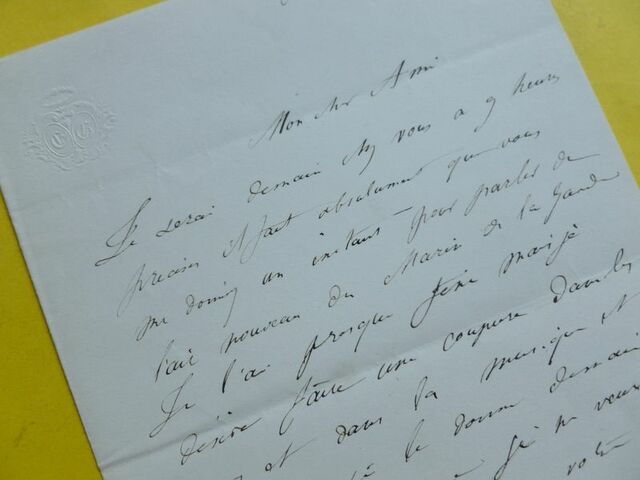 Mon cher Ami
Je serai demain chez vous a 9 heures
précises il faut absolument que vous
me donniez un instant pour parler de
l'air nouveau du Marin de la Garde
Je l'ai presque fini mais je
désire faire une coupure dans les
et dans la musique et
je le donne demain
je ne veux
votre